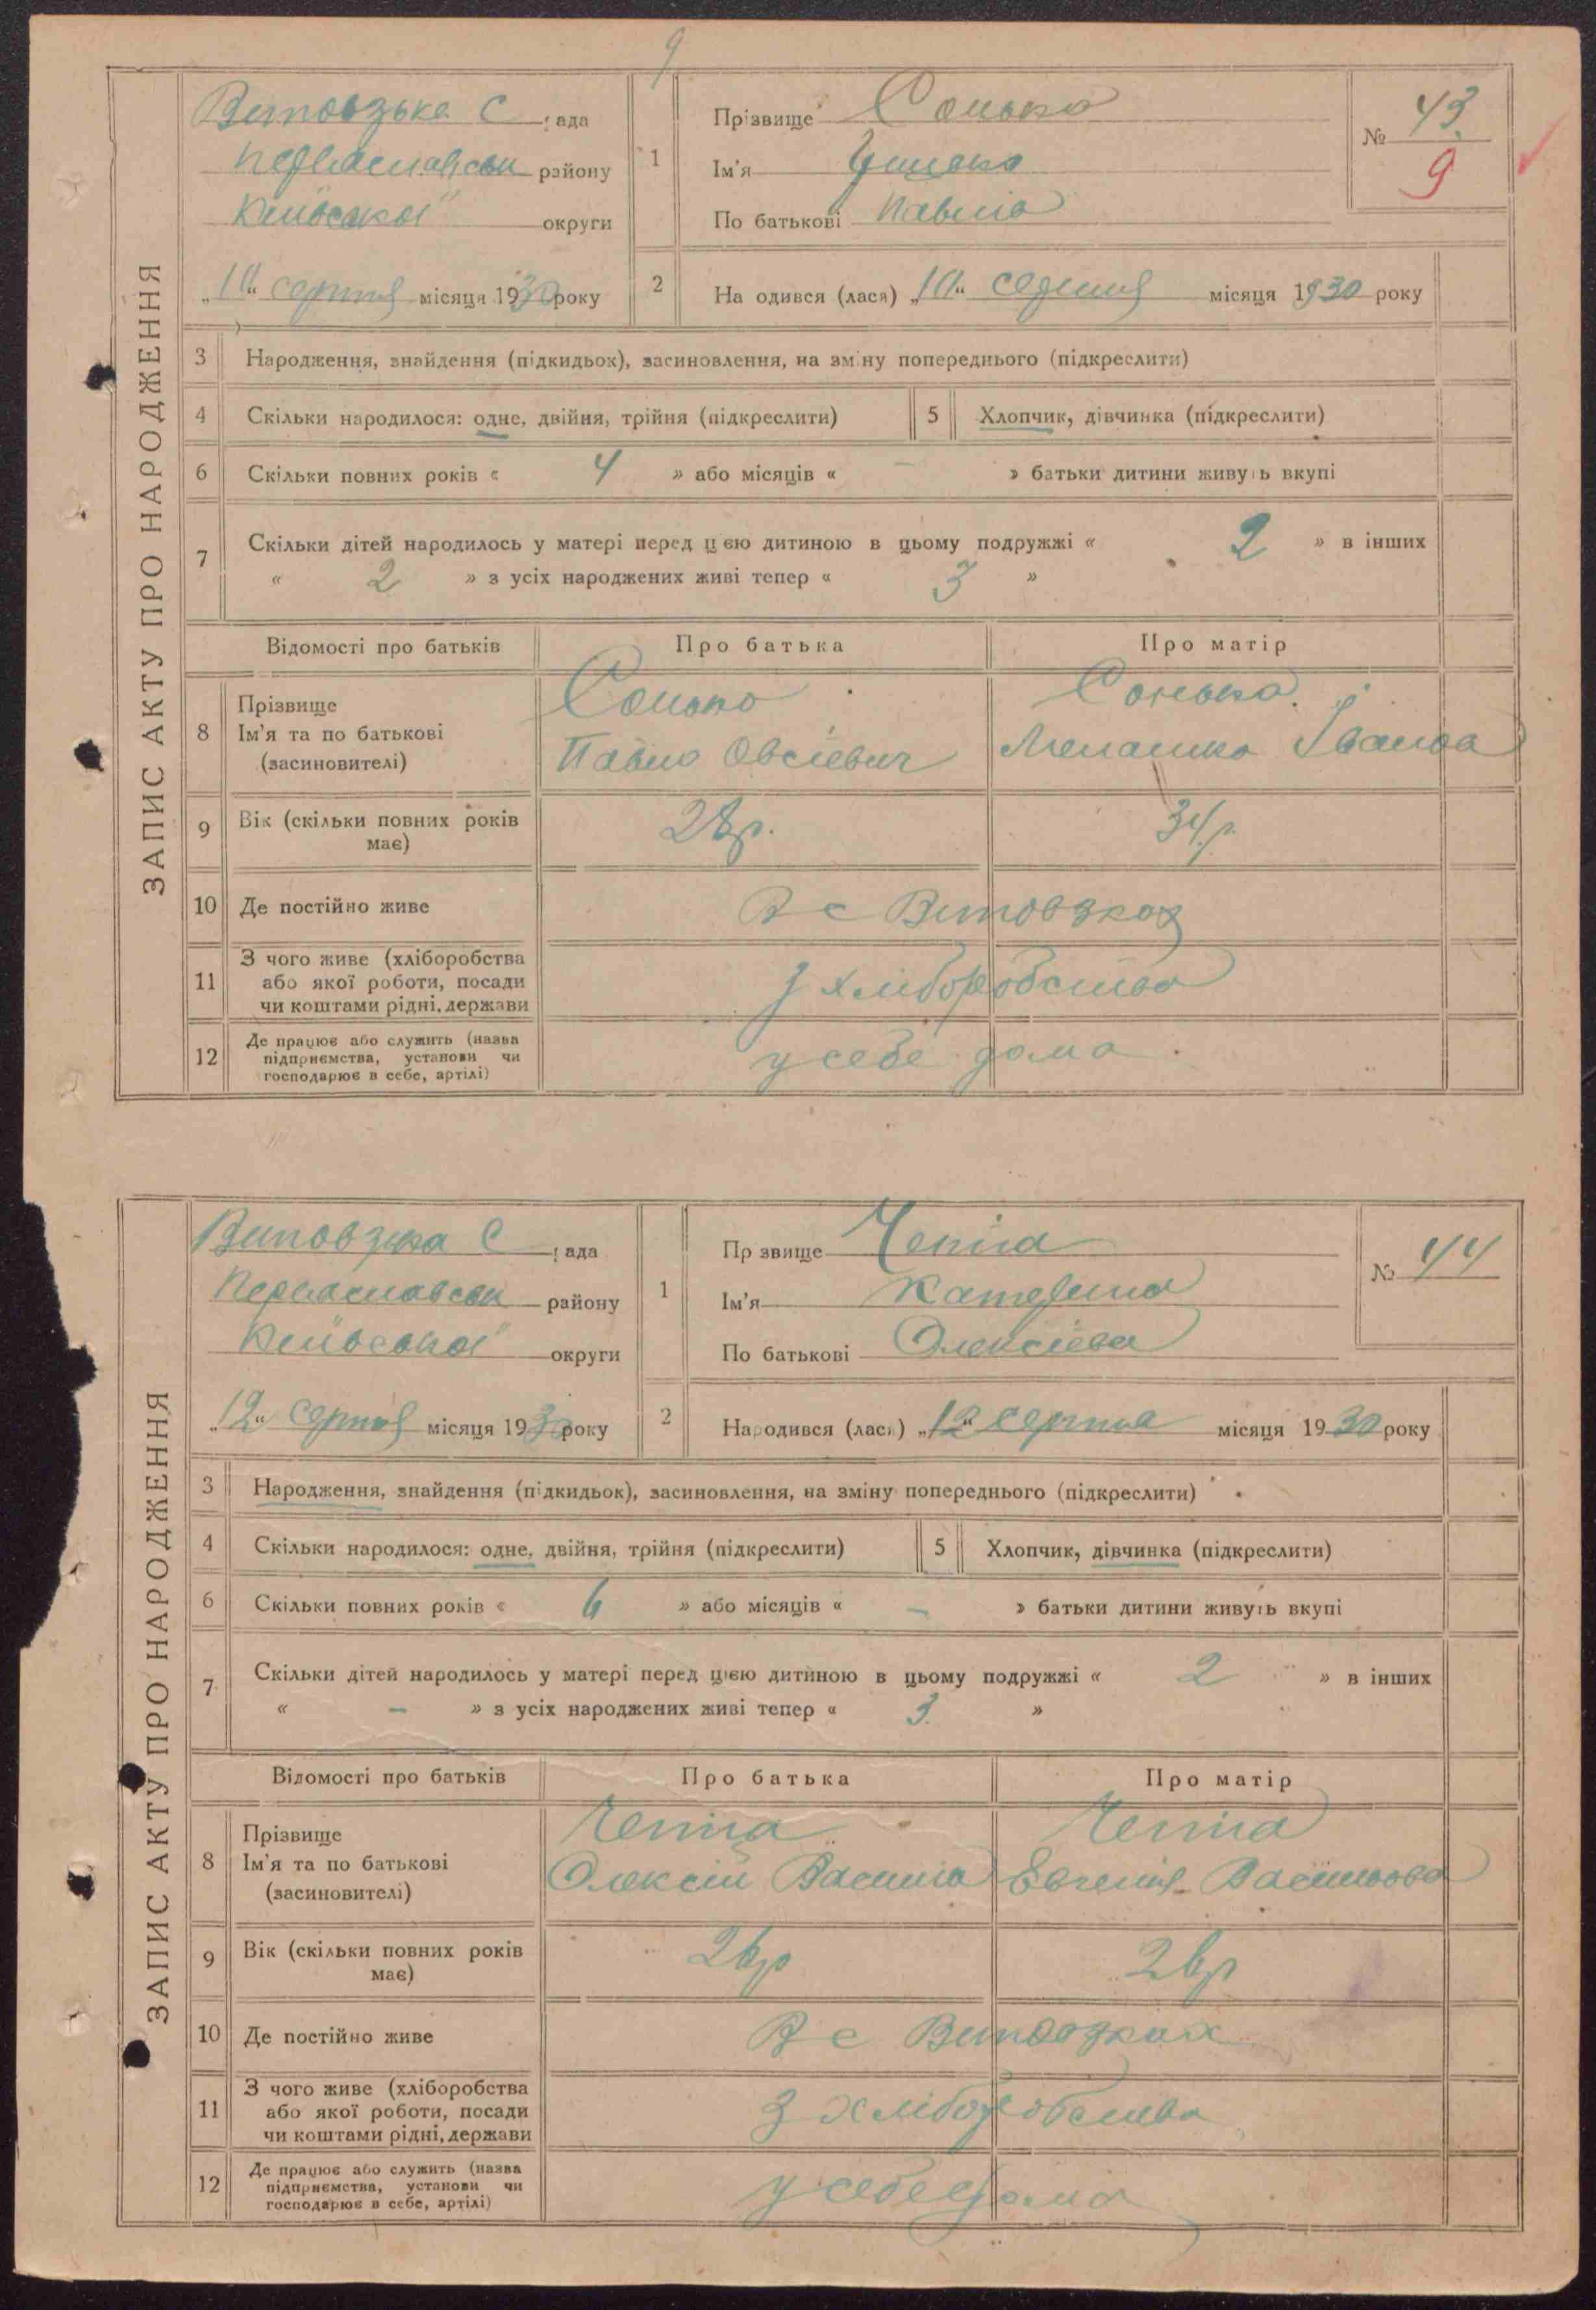 9
Випозька С рада
Переяславськ району
Київської округи
„10“ серпня місяця 1930 року
1
Прізвище Сонько
Ім'я
По батькові Павлів
№ 43.
9
2
На одився (лася) „10“ серпня місяця 1930 року
ЗАПИС АКТУ ПРО НАРОДЖЕННЯ
3 Народження, знайдення (підкидьок), засиновлення, на зміну попереднього (підкреслити)
4 Скільки народилося: одне, двійня, трійня (підкреслити) 5 Хлопчик, дівчинка (підкреслити)
6 Скільки повних років « 4 » або місяців « – » батьки дитини живуть вкупі
7 Скільки дітей народилось у матері перед цією дитиною в цьому подружжі « 2 » в інших
« 2 » з усіх народжених живі тепер « 3 »
Відомості про батьків Про батька Про матір
8 Прізвище Сонько Сонько.
Ім'я та по батькові Павло Овсієвич Меланка Іванова
(засновителі)
9 Вік (скільки повних років має) 28р. 34р.
10 Де постійно живе В с
11 З чого живе (хліборобства
або якої роботи, посади з хліборобства
чи коштами рідні, держави
12 Де працює або служить (назва
підприємства, установи чи у себе дома
господарює в себе, артілі)
рада
Переяславськ району
Київської округи
„12“ серпня місяця 1930 року
1
Пр звище Чепіга
Ім'я Катерина
По батькові Олексієва
№ 44
2
Народився (лася) „12“ серпня місяця 1930 року
ЗАПИС АКТУ ПРО НАРОДЖЕННЯ
3 Народження, знайдення (підкидьок), засиновлення, на зміну попереднього (підкреслити)
4 Скільки народилося: одне, двійня, трійня (підкреслити) 5 Хлопчик, дівчинка (підкреслити)
6 Скільки повних років « 6 » або місяців « – » батьки дитини живуть вкупі
7 Скільки дітей народилось у матері перед цією дитиною в цьому подружжі « 2 » в інших
« – » з усіх народжених живі тепер « 3. »
Відомості про батьків Про батька Про матір
8 Прізвище Чепіга Чепіга
Ім'я та по батькові Олексій Васильів Евгенія Васильова
(засиновителі)
9 Вік (скільки повних років має) 26р 26р
10 Де постійно живе В с
11 З чого живе (хліборобства
або якої роботи, посади З хліборобства
чи коштами рідні, держави
12 Де працює або служить (назва
підприємства, установи чи у себе дома
господарює в себе, артілі)